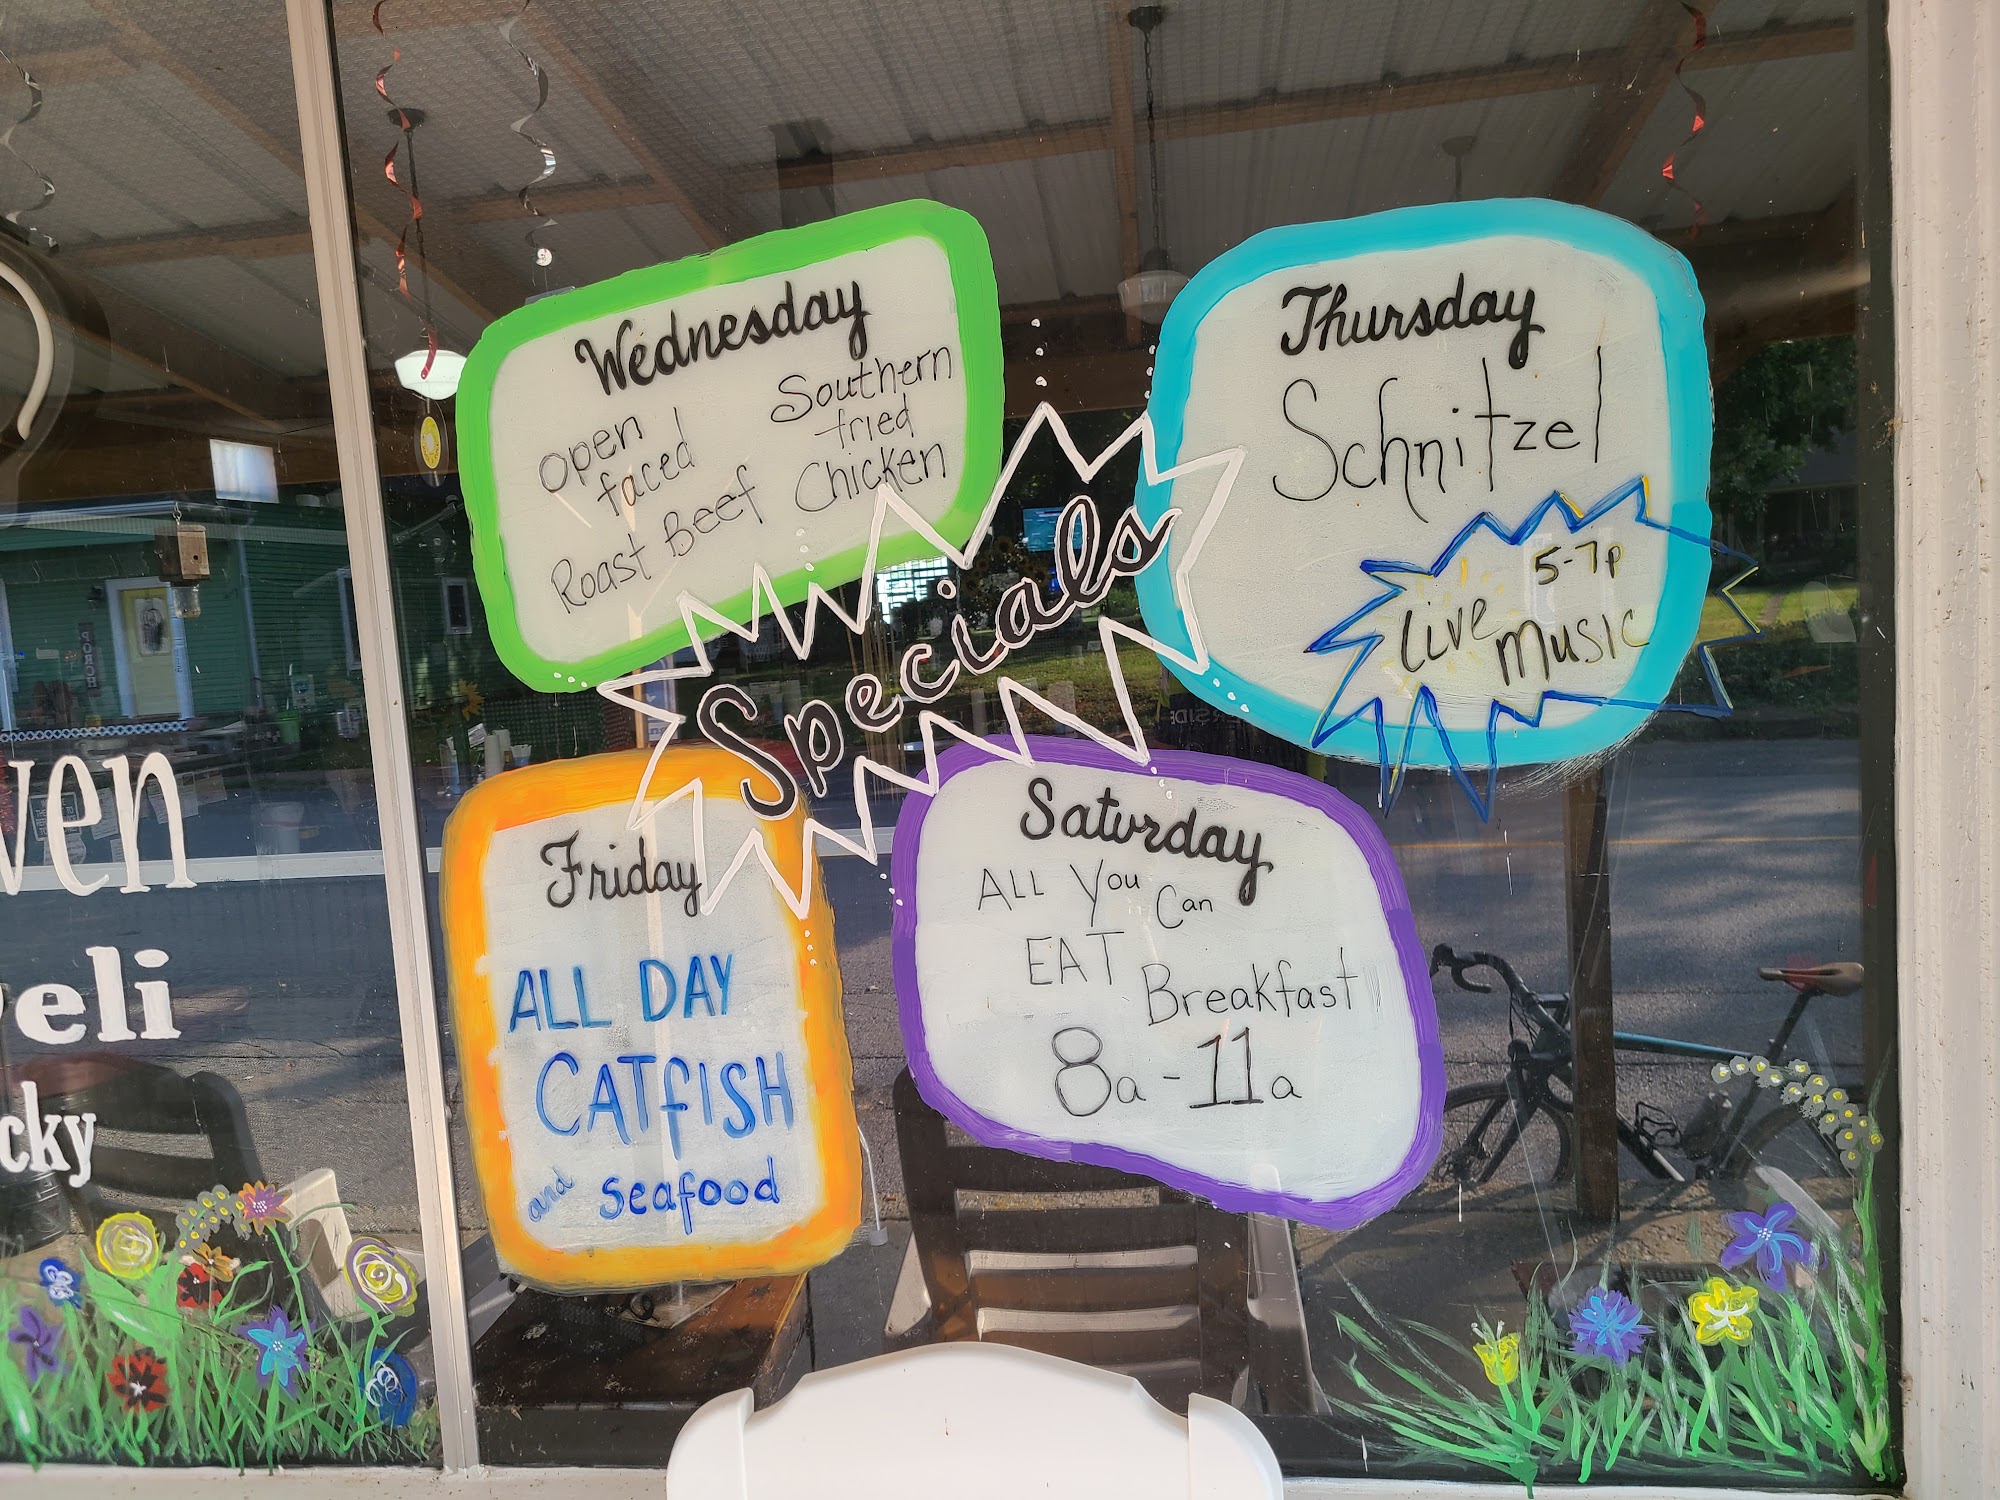 Wednesday
Open
faced
Roast Beef
Southern
fried
Chicken
Thursday
Schnitzel
5-7p
Live
Music
Specials
Friday
ALL DAY
CATfISH
and seafood
Saturday
ALL You Can
EAT Breakfast
8a-11a
ven
eli
cky
PORCH